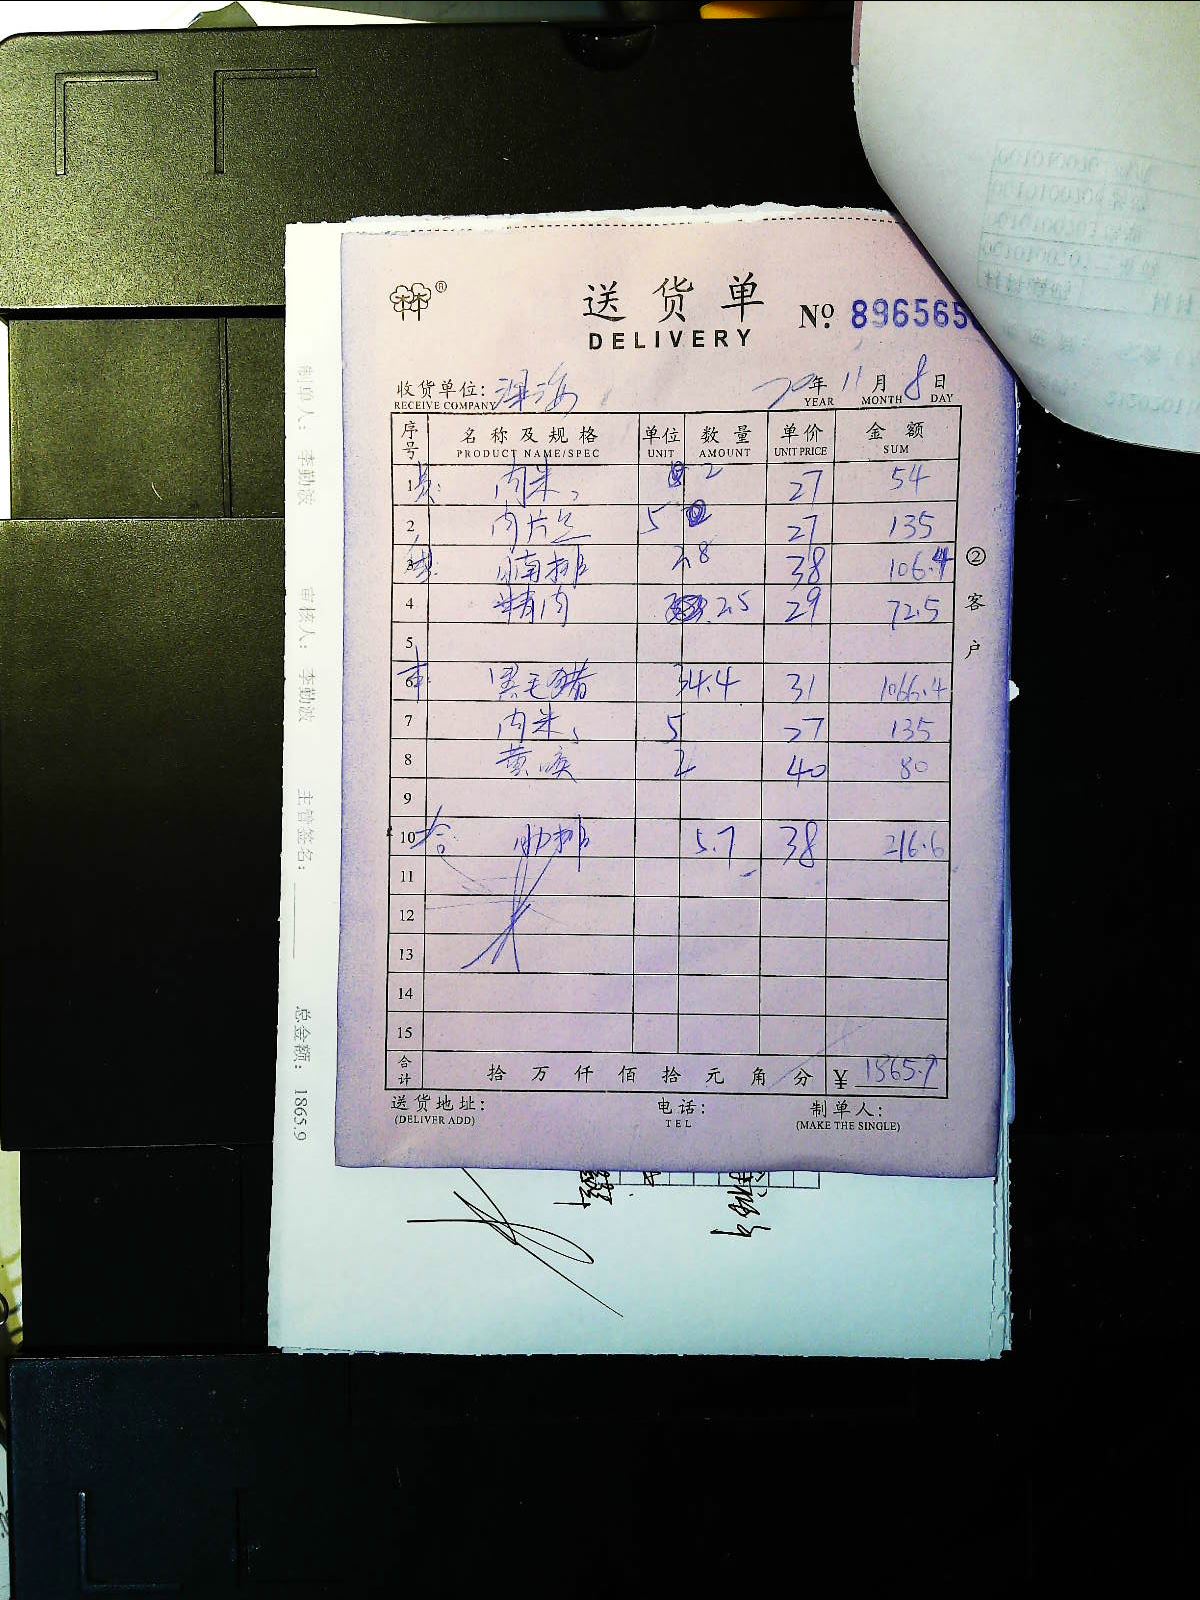 送货单
DELIVERY
No. 896565
收货单位: 深海 20年 11月 8日
RECEIVE COMPANY YEAR MONTH DAY
序号 名称及规格 单位 数量 单价 金额
PRODUCT NAME/SPEC UNIT AMOUNT UNIT PRICE SUM
1 肉米 2 27 54
2 肉片 5 27 135
3 腩排 2.8 38 106.4
4 精肉 2.5 29 72.5
5
6 黑毛猪 34.4 31 1066.4
7 肉米 5 27 135
8 黄喉 2 40 80
9
10 肋排 5.7 38 216.6
11
12
13
14
15
合计 拾 万 仟 佰 拾 元 角 分 ¥ 1865.9
送货地址: 电话: 制单人:
(DELIVER ADD) TEL (MAKE THE SINGLE)
② 客户
制单人: 李勤波 审核人: 李勤波 主管签名: 总金额: 1865.9